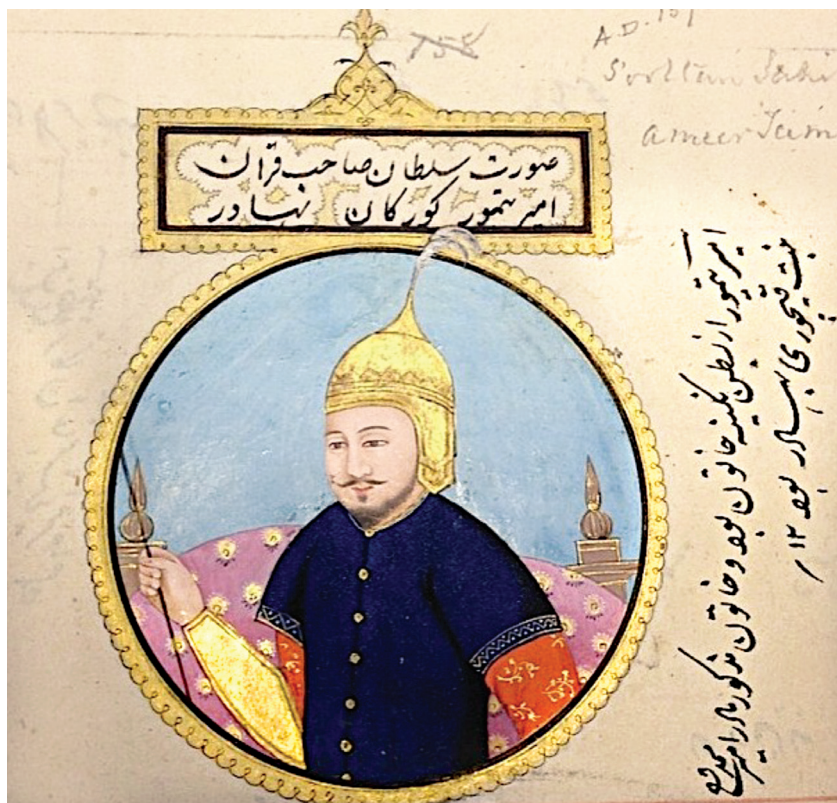 758
A.D. 15
Sooltan Sahi
ameer Teim
صورت سلطان صاحب قران
امیر تیمور کورکان بهادر
امیر تیمور از بطن نکینه خاتون بود و خاتون مذکور مادر امیر
بنت بهادر بود ۱۲